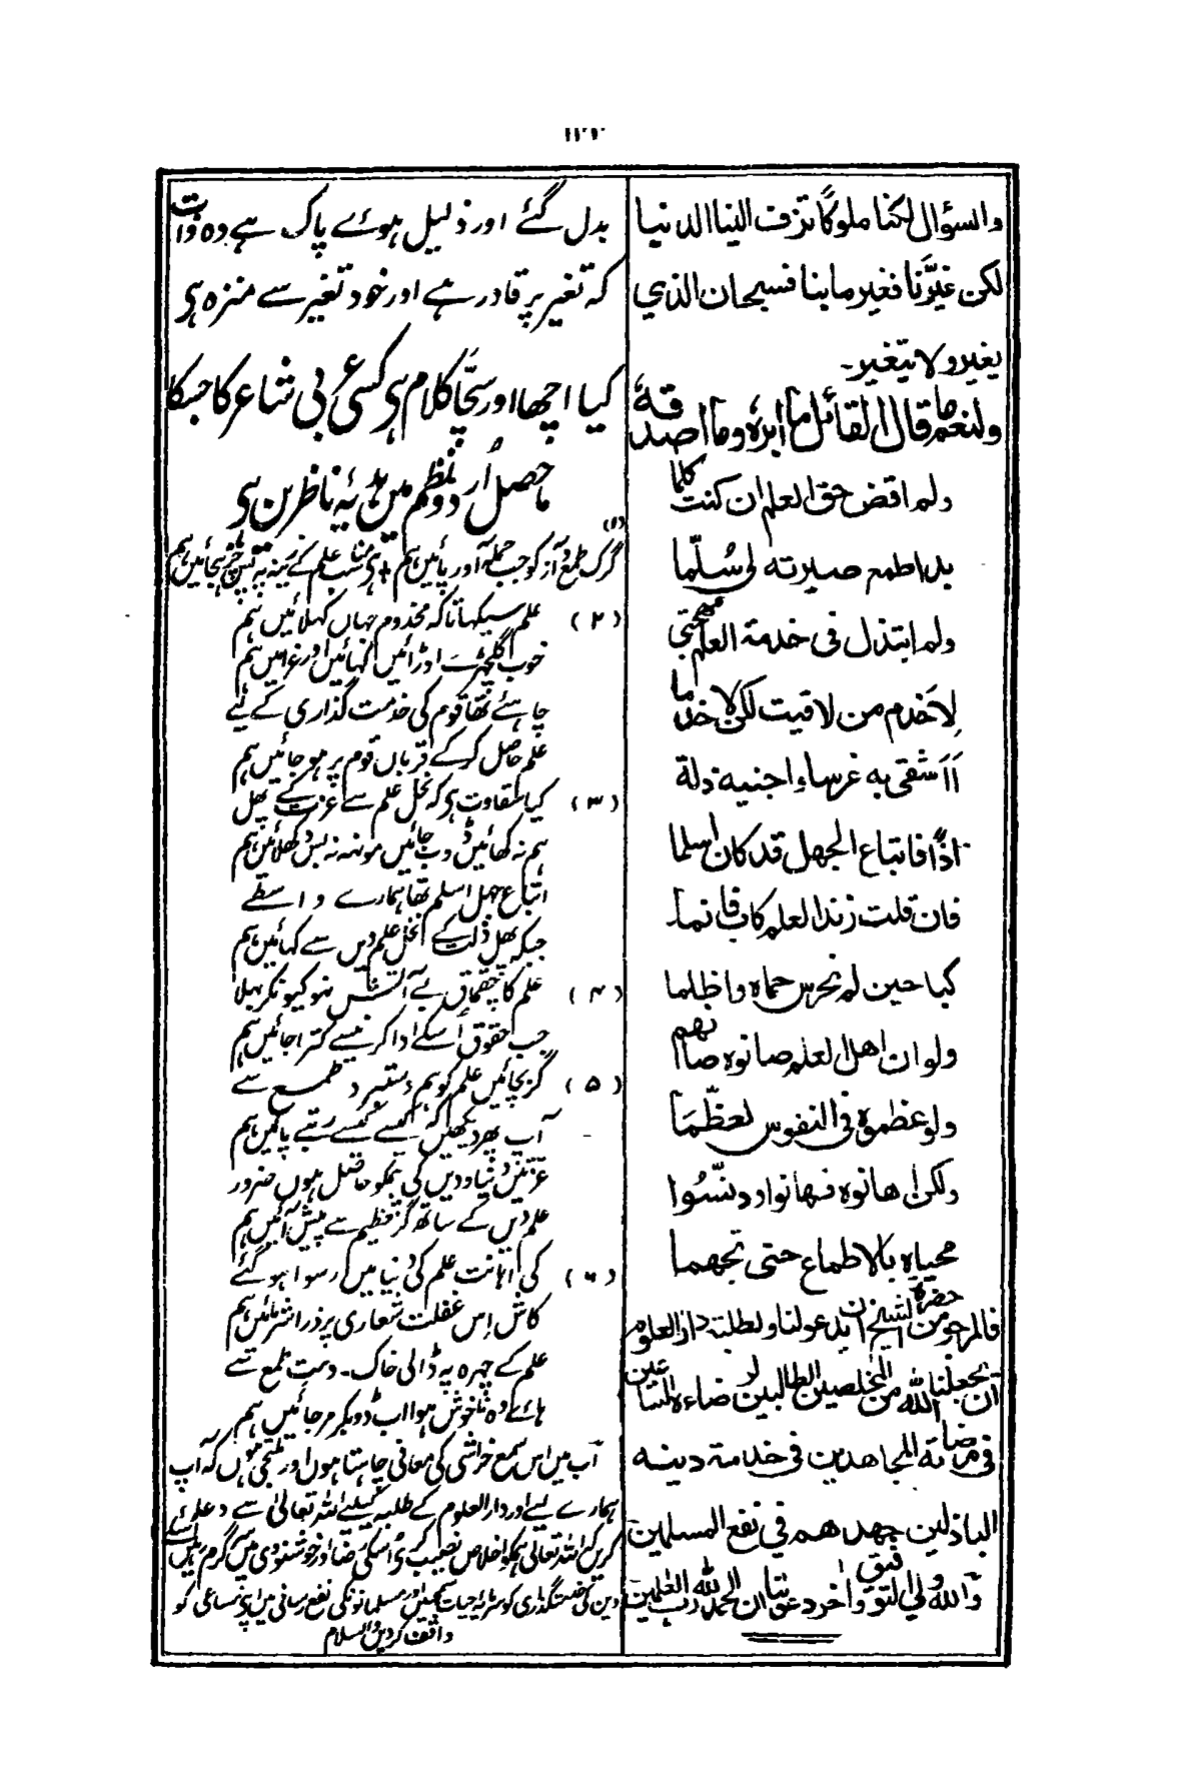 والسؤال لكنا ملوكًا تزف الينا الدنيا
لكن غيَّرنا فغير ما بنا فسبحان الذي
يغير ولا يتغير۔
ولنعم ما قال القائل ما ابره وما اصدقه
ولم اقض حق العلم ان كنت كلما
بدا طمع صيرته لى سُلّما
ولم ابتذل فى خدمة العلم مهجتى
لِاَخدم من لاقيت لكن لا خدما
اَاَشقى به غرسا واجنيه ذلة
اذًا فاتباع الجهل قد كان اسلما
فان قلت زند العلم كاب فانما
كبا حين لم نحرس حماه واظلما
ولو ان اهل العلم صانوه صانهم
ولو عظموه فى النفوس لعظّمَا
ولكن اهانوه فهانوا ودنّسُوا
محياه بالاطماع حتى تجهما
فالمرجو من حضرة الشيخ ان يدعو لنا ولطلبة دار العلوم
ان يجعلنا الله من المخلصين الطالبين لرضاءه الساعين
فى مرضاته المجاهدين فى خدمة دينه
الباذلين جهدهم في نفع المسلمين
والله ولي التوفيق وآخر دعوتنا ان الحمد لله رب العلمين
بدل گئے اور ذلیل ہوئے پاک ہے وہ ذات
کہ تغیر پر قادر ہے اور خود تغیر سے منزہ ہی
کیا اچھا اور سچّا کلام ہی کسی عربی شاعر کا جسکا
ماحصل اُردو نظم میں ہدیۂ ناظرین ہی
(۱) گرگ طمع و آز کو جب حملہ آور پائیں ہم
(۲) علم سیکھا تاکہ مخدوم جہاں کہلائیں ہم
خوب گلچھرے اوڑائیں
چاہئے تھا قوم کی خدمت گذاری کے لئے
علم حاصل کرکے قربان قوم پر ہو جائیں ہم
(۳) کیا شقاوت ہی کہ نخل علم سے عزت کے پھل
ہم نہ کھائیں
اتباع جہل اسلم تھا ہمارے واسطے
جبکہ پھل ذلت کے نخل علم دیں سے کھائیں ہم
(۴) علم کا چقماق بے آتش نہو کیونکر بھلا
جب حقوق اُسکے ادا کرنیسے کترا جائیں ہم
(۵) گر بچائیں علم کو ہم دستبرد طمع سے
آپ پھر دیکھیں کہ کیسے کیسے رتبے پائیں ہم
عزتیں دنیا و دیں کی ہمکو حاصل ہوں ضرور
علم دیں کے ساتھ گر تعظیم سے پیش آئیں ہم
(۶) کی اہانت علم کی دنیا میں رسوا ہو گئے
کاش اِس غفلت شعاری پر ذرا شرمائیں ہم
علم کے چہرہ پہ ڈالی خاک ۔ دست طمع سے
ہائے وہ ناخوش ہوا اب ڈوبکر مر جائیں ہم
آب میں اس سمع خراشی کی معافی چاہتا ہوں اور ملتجی ہوں کہ آپ
ہمارے لیے اور دارالعلوم کے طلبہ کیلئے اللہ تعالیٰ سے دعا
کریں کہ اللہ تعالیٰ ہمکو اخلاص نصیب کرے اُسکی رضا اور خوشنودی میں سرگرم رہیں
دین کی خدمتگذاری کو سرمایہ حیات سمجھیں اور مسلمانونکی نفع رسانی میں اپنی مساعی کو
وقف کردیں والسلام